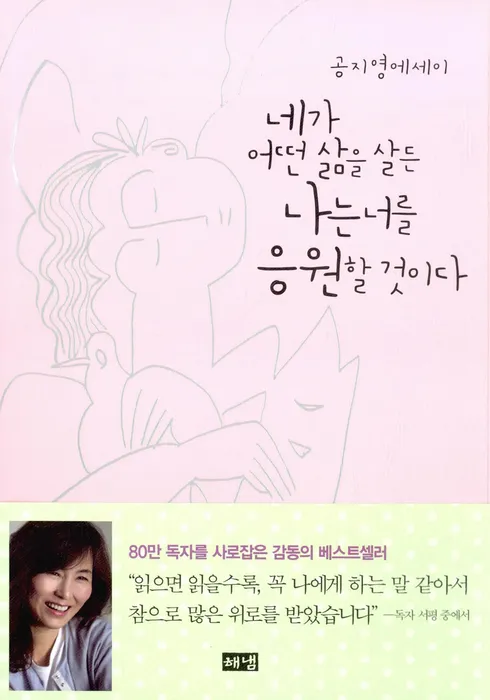 공지영에세이
네가
어떤 삶을 살든
나는 너를
응원할 것이다
80만 독자를 사로잡은 감동의 베스트셀러
“읽으면 읽을수록, 꼭 나에게 하는 말 같아서
참으로 많은 위로를 받았습니다” —독자 서평 중에서
해냄